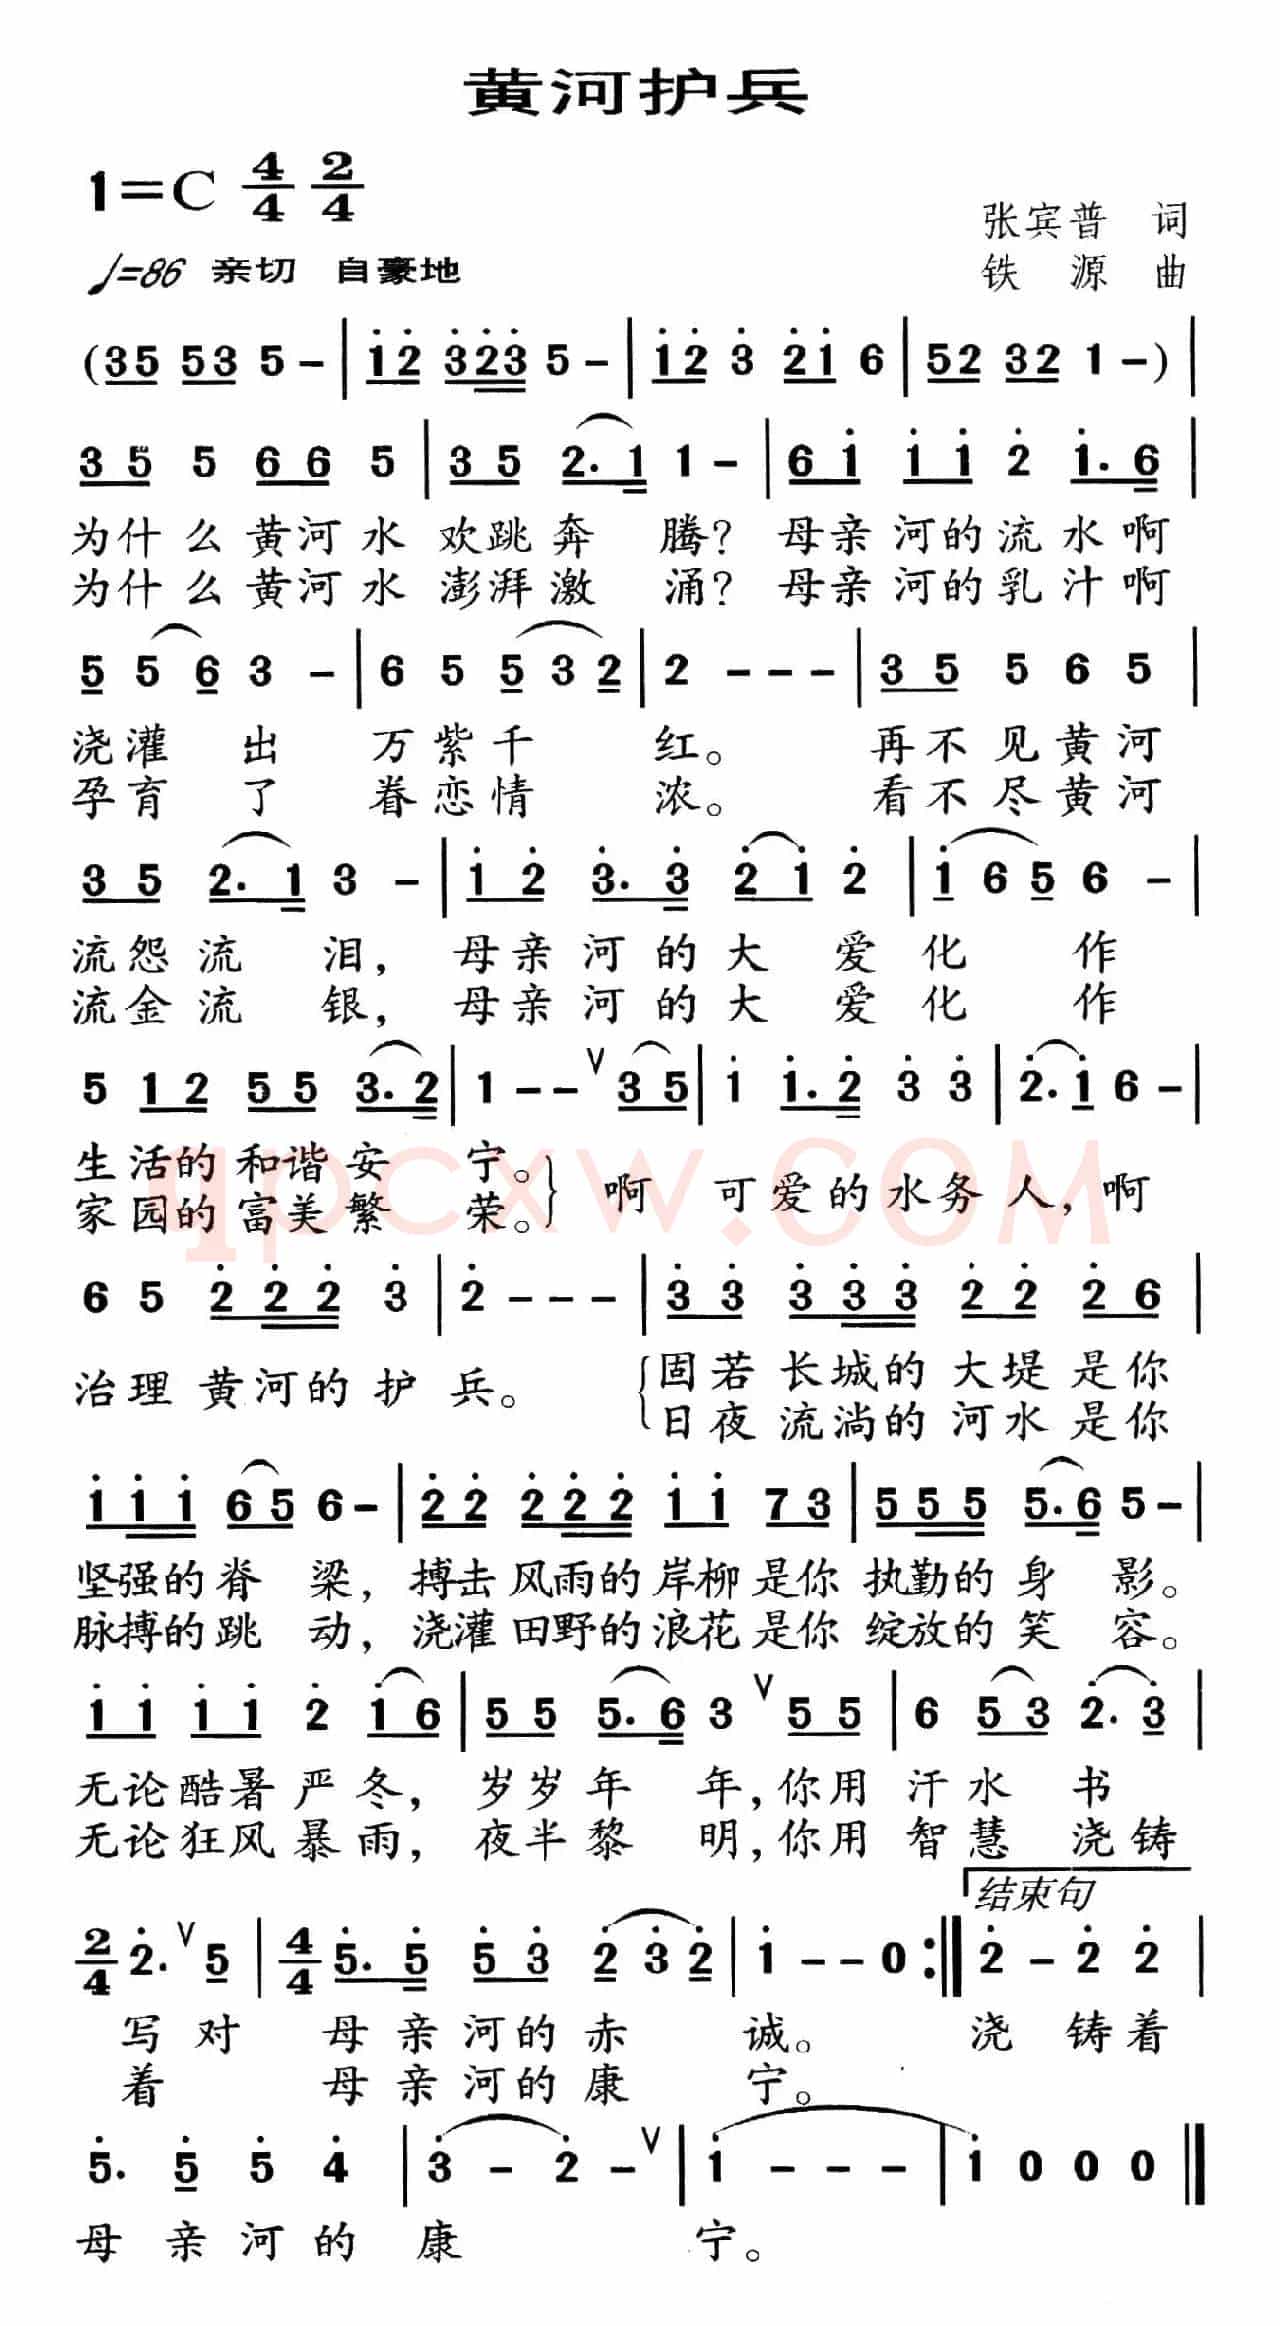 黄河护兵
1=C 4/4 2/4
张宾普 词
♩=86 亲切 自豪地
铁 源 曲
(35 53 5 - | i̇2̇ 3̇2̇3̇ 5 - | i̇2̇ 3̇ 2̇i̇ 6 | 52 32 1 - ) |
3 5 5 6 6 5 | 3 5 2. 1 1 - | 6 i̇ i̇ i̇ 2̇ i̇. 6 |
为什么黄河水 欢跳奔 腾？母亲河的流水啊
为什么黄河水 澎湃激 涌？母亲河的乳汁啊
5 5 6 3 - | 6 5 5 3 2 | 2 - - - | 3 5 5 6 5 |
浇灌 出 万紫千 红。 再不见黄河
孕育 了 眷恋情 浓。 看不尽黄河
3 5 2. 1 3 - | i̇ 2̇ 3̇. 3̇ 2̇ i̇ 2̇ | i̇ 6 5 6 - |
流怨流 泪，母亲河的大 爱化 作
流金流 银，母亲河的大 爱化 作
5 1 2 5 5 3. 2 | 1 - - ∨ 3 5 | i̇ i̇. 2̇ 3̇ 3̇ | 2̇. i̇ 6 - |
生活的和谐安 宁。
家园的富美繁 荣。
啊 可爱的水务人，啊
qpcxw.COM
6 5 2̇ 2̇ 2̇ 3̇ | 2̇ - - - | 3̇ 3̇ 3̇ 3̇ 3̇ 2̇ 2̇ 2̇ 6 |
治理黄河的护 兵。
固若长城的大堤是你
日夜流淌的河水是你
i̇ i̇ i̇ 6 5 6 - | 2̇ 2̇ 2̇ 2̇ 2̇ i̇ i̇ 7 3 | 5 5 5 5. 6 5 - |
坚强的脊 梁，搏击风雨的岸柳是你执勤的身 影。
脉搏的跳 动，浇灌田野的浪花是你绽放的笑 容。
i̇ i̇ i̇ i̇ 2̇ i̇ 6 | 5 5 5. 6 3 ∨ 5 5 | 6 5 3 2̇. 3̇ |
无论酷暑严冬，岁岁年 年，你用汗水 书
无论狂风暴雨，夜半黎 明，你用智慧 浇铸
结束句
2/4 2̇. ∨ 5 | 4/4 5̇. 5̇ 5̇ 3̇ 2̇ 3̇ 2̇ | i̇ - - 0 :‖ 2̇ - 2̇ 2̇ |
写对 母亲河的赤 诚。 浇 铸着
着 母亲河的康 宁。
5̇. 5̇ 5̇ 4̇ | 3̇ - 2̇ - ∨ | i̇ - - - | i̇ 0 0 0 ‖
母 亲河的 康 宁。